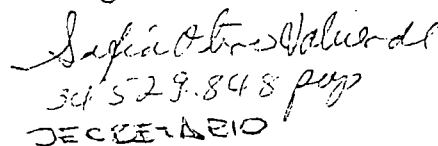 Sofía Otero Valverde
34 529.848 pop
SECRETARIO